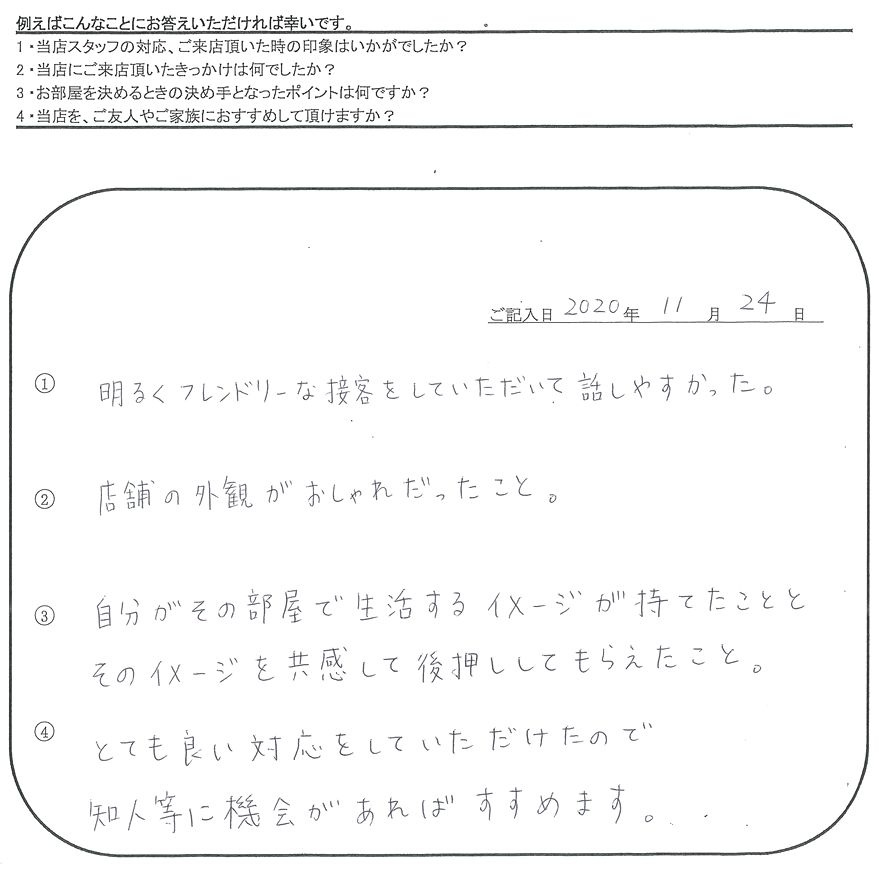 例えばこんなことにお答えいただければ幸いです。
1・当店スタッフの対応、ご来店頂いた時の印象はいかがでしたか？
2・当店にご来店頂いたきっかけは何でしたか？
3・お部屋を決めるときの決め手となったポイントは何ですか？
4・当店を、ご友人やご家族におすすめして頂けますか？
ご記入日 2020 年 11 月 24 日
① 明るくフレンドリーな接客をしていただいて話しやすかった。
② 店舗の外観がおしゃれだったこと。
③ 自分がその部屋で生活するイメージが持てたことと
そのイメージを共感して後押ししてもらえたこと。
④ とても良い対応をしていただけたので
知人等に機会があればすすめます。